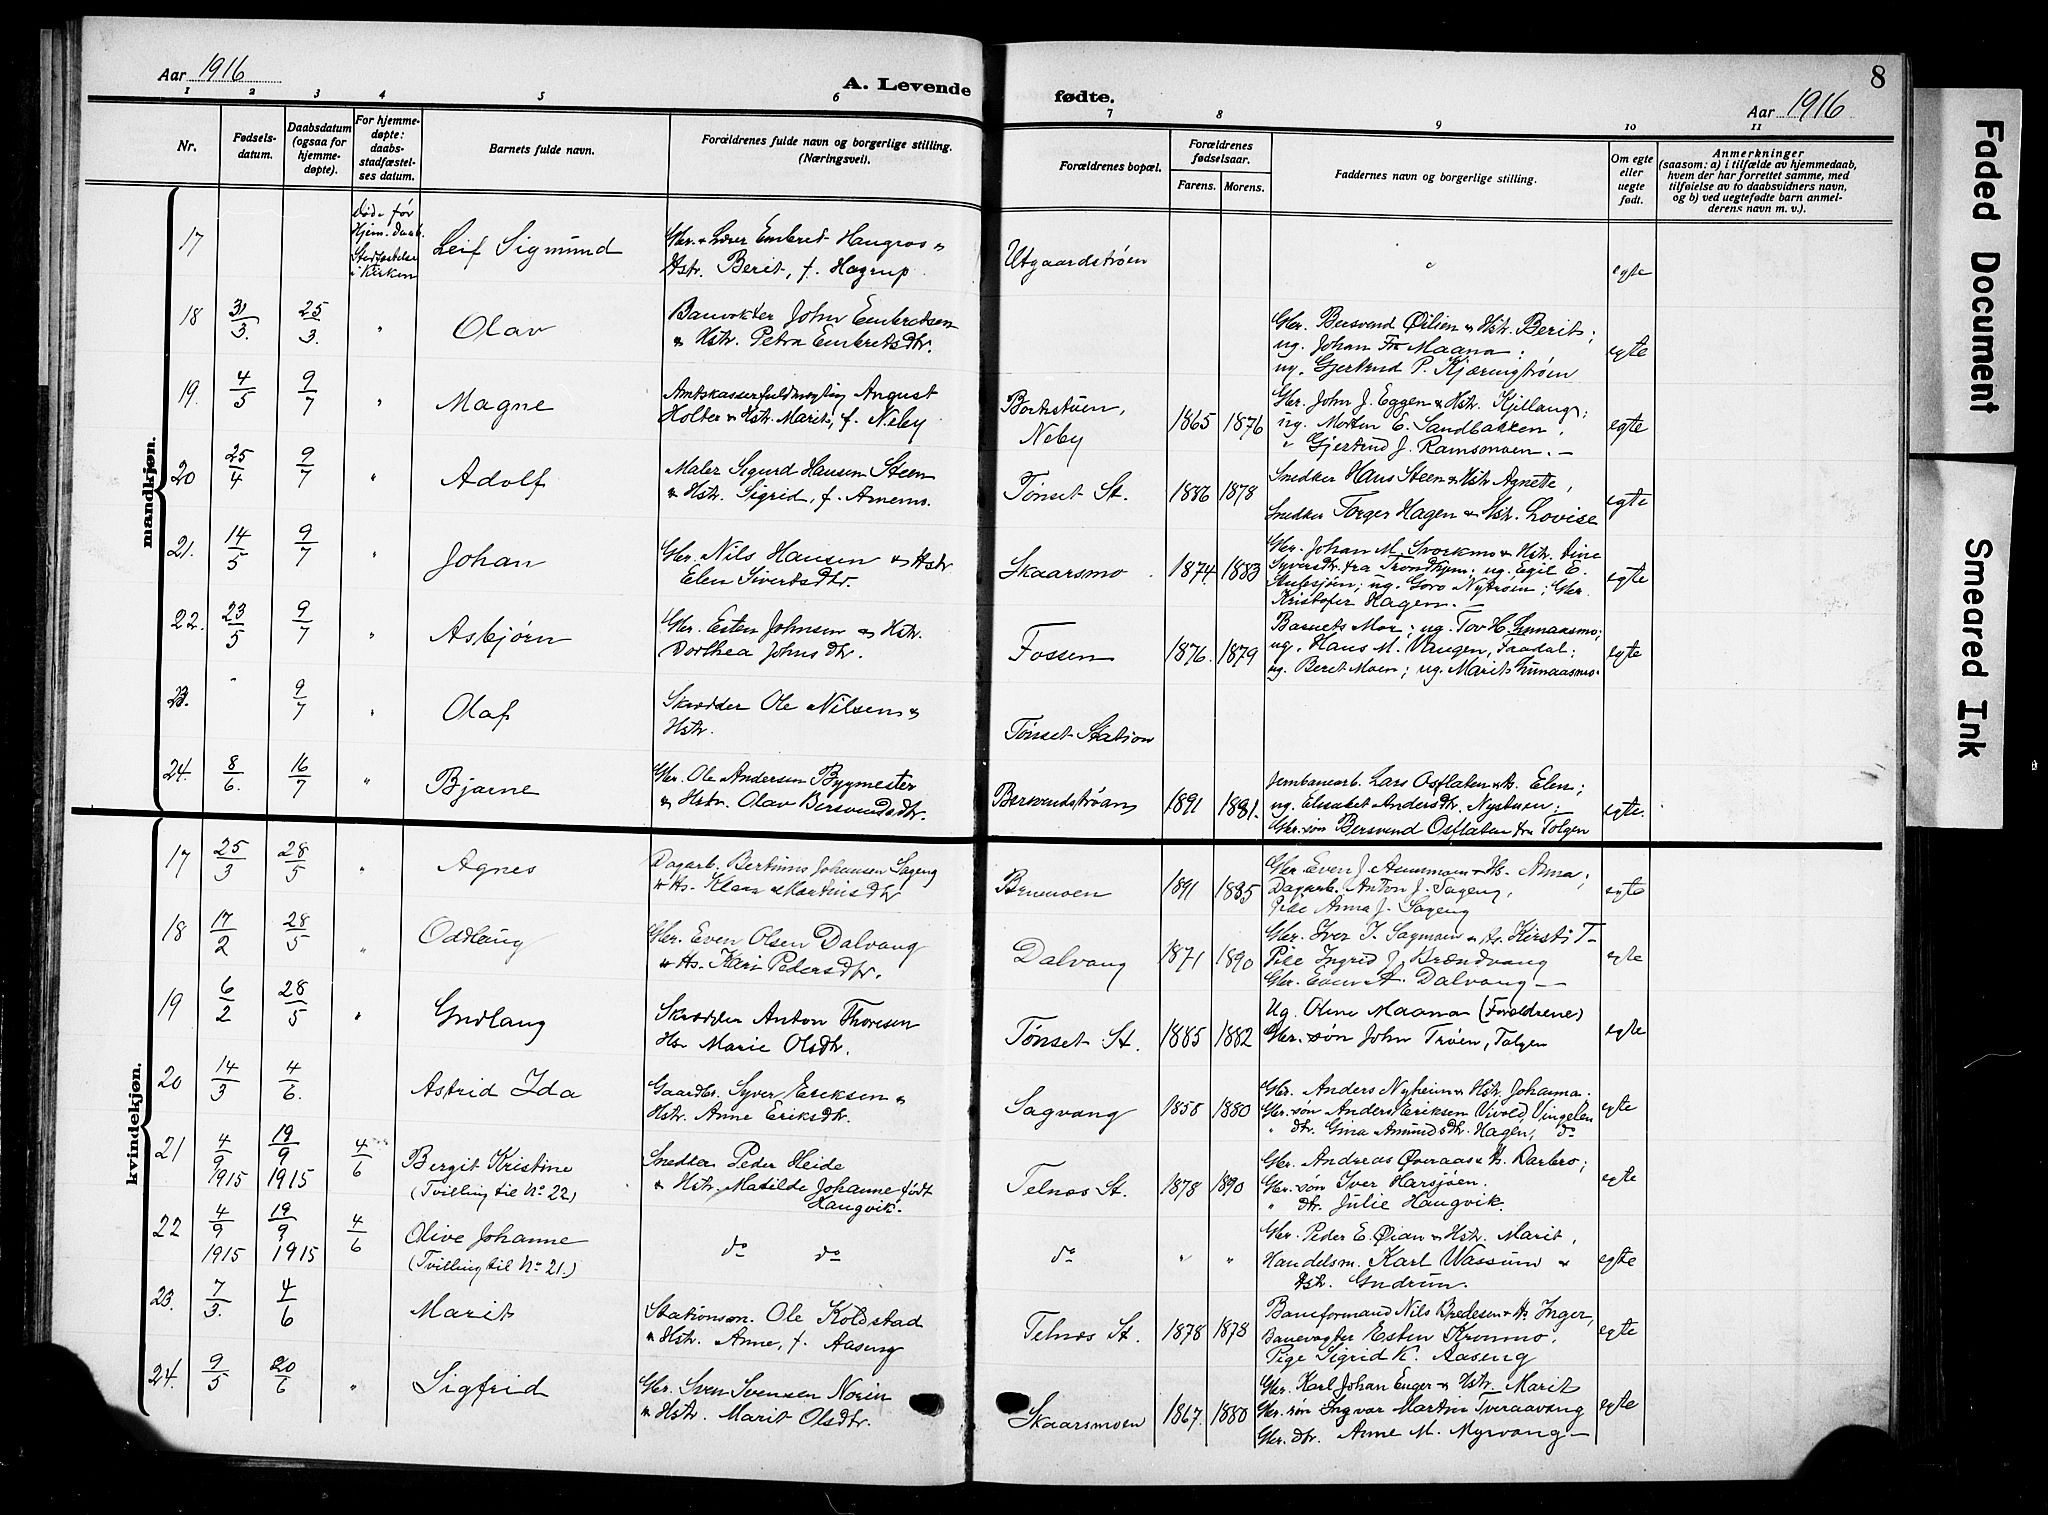 Aar 1916
A. Levende fødte.
8
Aar 1916
1 2 3 4 5 6 7 8 9 10 11
Nr.
Fødsels-
datum.
Daabsdatum
(ogsaa for
hjemme-
døpte).
For hjemme-
døpte:
daabs-
stadfæstel-
ses datum.
Barnets fulde navn.
Forældrenes fulde navn og borgerlige stilling.
(Næringsvei).
Forældrenes bopæl.
Forældrenes
fødselsaar.
Farens. Morens.
Faddernes navn og borgerlige stilling.
Om egte
eller
uegte
født.
Anmerkninger
(saasom: a) i tilfælde av hjemmedaab,
hvem der har forrettet samme, med
tilføielse av to daabsvidners navn,
og b) ved uegtefødte barn anmel-
derens navn m. v.).
mandkjøn.
17 Døde før
Hjem. daab.
Stadfæstelse
i Kirken
Leif Sigmund
Gbr. & Lærer Embret Haugros &
Hstr. Berit, f. Hagrup.
Utgaardstrøen
egte
18 31/3. 25/3. " Olav
Banvokter John Embretsen
& Hstr. Petra Embretsdtr.
Gbr. Bersvend Øilien & Hstr. Berit;
ug. Johan Fr. Maana;
ug. Gjertrud P. Kjæringtrøen
egte
19. 4/5 9/7 " Magne
Amtskasserfuldmægtig August
Holter & Hstr. Marit, f. Neby
Borkstuen,
Neby
1865 1876
Gbr. John J. Eggen & Hstr. Kjellaug;
ug. Morten E. Sandbakken,
" Gjertrud J. Ramsmoen. -
egte
20 25/4 9/7 " Adolf
Maler Sigurd Hansen Steen
& Hstr. Sigrid, f. Arnemo.
Tønset St.
1886 1878
Snedker Hans Steen & Hstr Agnette,
Snedker Torger Hagen & Hstr. Lovise
egte
21. 14/5 9/7 " Johan
Gbr. Nils Hansen & Hstr
Elen Sivertsdtr.
Skaarsmo
1874. 1883
Gbr. Johan M. Svorkmo & Hstr. Dine
Syversdtr. fra Trondhjem; ug. Egil E.
Stubsjøen; ug. Goro Nytrøen; Gbr.
Kristofer Hagen. -
egte
22. 23/5 9/7 " Asbjørn
Gbr. Esten Johnsen & Hstr.
Dorthea Johnsdtr.
Fossen
1876. 1879
Barnets Mor; ug. Tov H. Gunaasmo;
ug. Hans M. Vangen, Faadal;
ug. Beret Moen; ug. Marit Gunaasmo.
egte
23. " 9/7 " Olaf
Skrædder Ole Nilsen &
Hstr.
Tønset Station
24. 8/6. 16/7 " Bjarne
Gbr. Ole Andersen Bygmester
& Hstr. Olav Bersvendsdtr.
Bersvendstrøan
1891 1881.
Jernbanearb. Lars Osflaten & Hs. Elen;
ug. Elisabet Andersdtr. Nystuen;
Gbr. søn Bersvend Osflaten fra Tolgen
egte.
kvindekjøn.
17 25/3 28/5 " Agnes
Dagarb. Bertinus Johansen Sageng
& Hs. Klara Martinusdtr
Brumoen
1891 1885
Gbr Even J. Aaummoen & Hs. Anna;
Dagarb. Anton J. Sageng,
Pike Anna J. Sageng
egte
18 17/2 28/5 " Oddlaug
Gbr. Even Olsen Dalvang
& Hs. Kari Pedersdtr.
Dalvang
1871 1890
Gbr. Iver I. Sagmoen & Hs. Kirsti T-
Pike Ingrid J. Brændvang
Gbr. Even A. Dalvang -
egte
19 6/2 28/5 " Gudlaug
Skrædder Anton Thoresen
Hs. Marie Olsdtr.
Tønset St.
1885 1882
Ug. Oline Maana (Foreldrene)
Gbr. søn John Trøen, Tolgen
egte
20 14/3 4/6. Astrid Ida
Gaardbr. Syver Eriksen &
Hstr. Anne Eriksdtr.
Sagvang
1858 1880
Gbr. Anders Nyheim & Hstr. Johanna.
Gbr. søn Anders Eriksen Vivold Vingelen
" dtr. Gina Amundsdtr. Hagen, do
egte
21 4/9 1915 19/9 1915 4/6 Bergit Kristine
(Tvilling til No 22)
Snedker Peder Heide
& Hstr. Matilde Johanne født
Haugvik.
Telnes St.
1878 1890
Gbr. Andreas Øveraas & Hs. Barbro;
Gbr. søn Iver Harsjøen.
" dtr. Julie Haugvik.
egte
22 4/9 1915 19/9 1915 4/6 Olive Johanne
(Tvilling til No 21.)
do do
do " "
Gbr. Peder E. Øian & Hstr. Marit,
Handelsm. Karl Wassum &
Hstr. Gudrun.
egte
23. 7/3. 4/6 Marit
Stationsm. Ole Koldstad
& Hstr. Anne, f. Aaseng
Telnes St.
1878 1878
Baneformand Nils Bredesen & Hs. Inger,
Banevogter Esten Kronmo,
Pige Sigrid K. Aaseng
egte
24. 9/5 20/6 " Sigfrid
Gbr. Sven Svensen Norin
& Hstr. Marit Olsdtr.
Skaarsmoen
1867. 1880
Gbr. Karl Johan Enger & Hstr. Marit
Gbr. søn Ingvar Martin Tveraavang
Gbr. dtr. Anne M. Myrvang -
egte
Faded Document
Smeared Ink